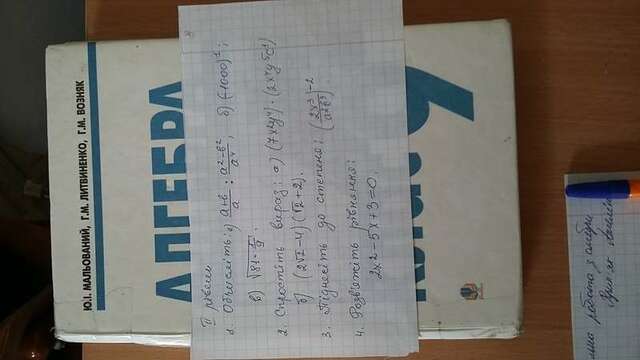 Ю.І. МАЛЬОВАНИЙ, Г.М. ЛИТВИНЕНКО, Г.М. ВОЗНЯК
АЛГЕБРА
II рівень
1. Обчисліть: а) (a+b)/a : (a²-b²)/a⁴, б) (-1000)¹;
в) √(81·1/9).
2. Спростіть вираз: а) (7x²y⁴)·(2x⁴y⁵)
б) (2√2-4)(√2+2).
3. Піднесіть до степеня: (2x³/a²b³)⁻²
4. Розв'яжіть рівняння:
2x²-5x+3=0.
клас 9
робота з алгебри